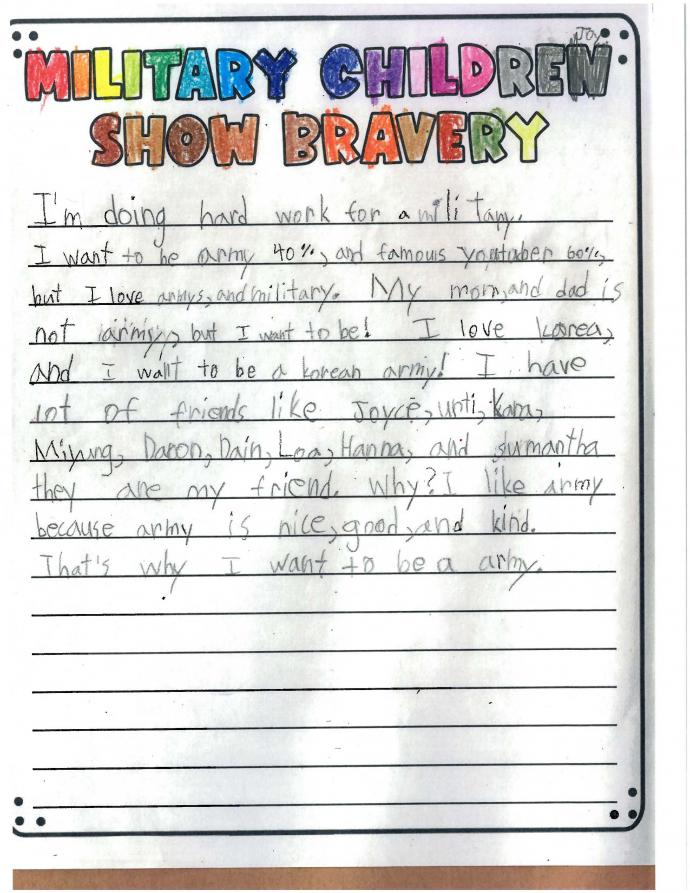 Joy
MILITARY CHILDREN
SHOW BRAVERY
I'm doing hard work for a military.
I want to be army 40%, and famous youtuber 60%,
but I love armys, and military. My mom, and dad is
not army, but I want to be! I love korea,
and I want to be a korean army! I have
lot of friends like Joyce, unti, kara,
Miyung, Daron, Dain, Loa, Hanna, and sumantha
they are my friend. why? I like army
because army is nice, good, and kind.
That's why I want to be a army.